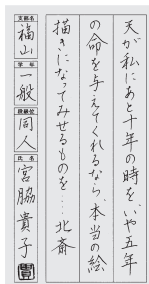 天が私にあと十年の時を、いや五年
の命を与えてくれるなら、本当の絵
描きになってみせるものを‥‥ 北斎
支部名
福山
学年
一般
段級位
同人
氏名
宮脇貴子